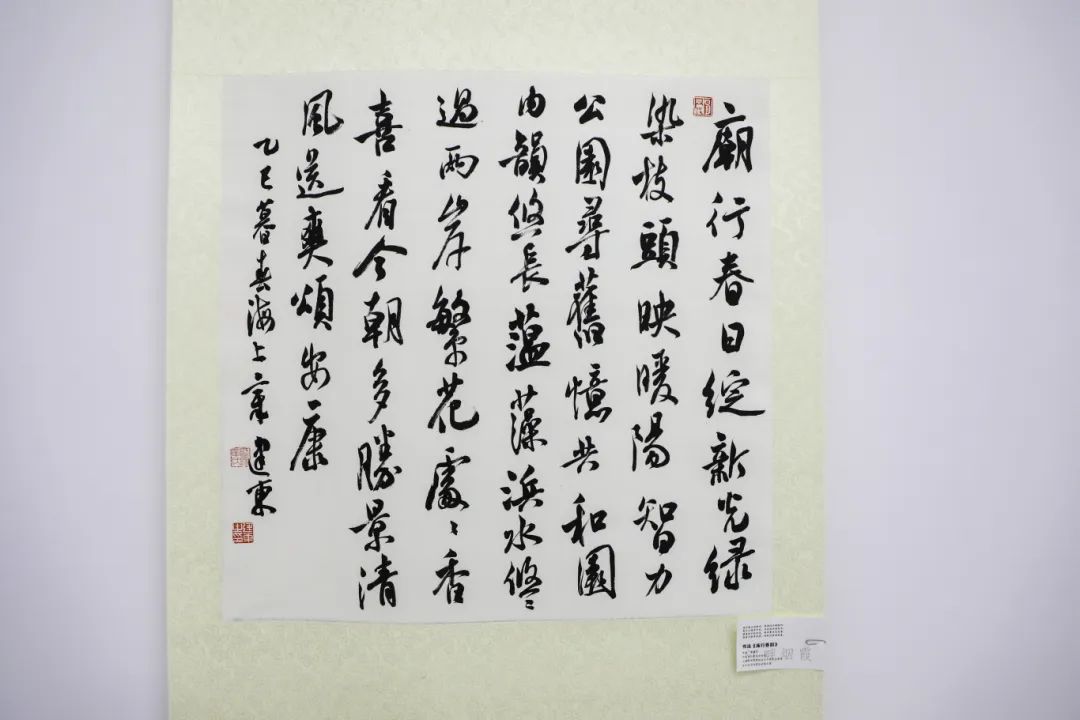 廟行春日綻新光绿
染枝頭映暖陽智力
公園尋舊憶共和園
内韻悠長蕰藻浜水悠〻
過兩岸繁花處〻香
喜看今朝多勝景清
風送爽頌安康
乙巳暮春海上章建東
书法《庙行春韵》
烟霞